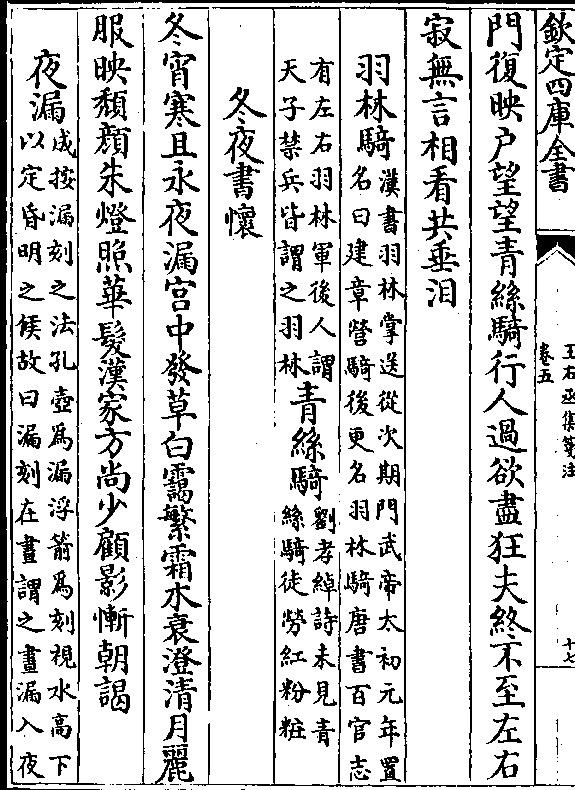 欽定四庫全書
王右丞集箋注
卷五
十七
門復映户望望青絲騎行人過欲盡狂夫終不至左右
寂無言相看共垂泪
羽林騎
漢書羽林掌送從次期門武帝太初元年置
名曰建章營騎後更名羽林騎唐書百官志
有左右羽林軍後人謂
天子禁兵皆謂之羽林
青絲騎
劉孝綽詩未見青
絲騎徒勞紅粉粧
冬夜書懷
冬宵寒且永夜漏宫中發草白靄繁霜水衰澄清月麗
服映頽顔朱燈照華髪漢家方尚少顧影慚朝謁
夜漏
成按漏刻之法孔壺爲漏浮箭爲刻視水高下
以定昏明之候故曰漏刻在晝謂之晝漏入夜